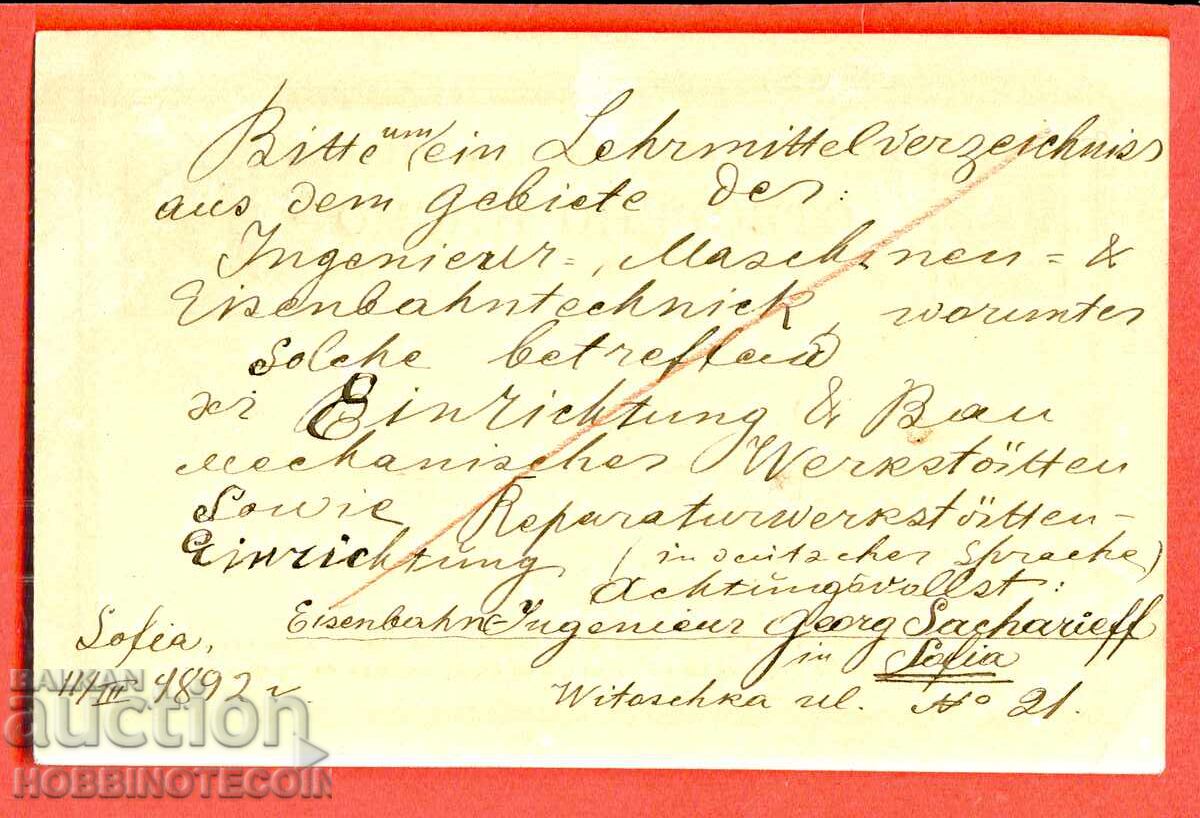 Bitte um ein Lehrmittelverzeichniss
aus dem gebiete der:
Ingenieur-, Maschinen- &
Eisenbahntechnick, worunter
solche betreffend
Einrichtung & Bau
Mechanischer Werkstätten
sowie Reparaturwerkstätten-
Einrichtung (in deutscher Sprache)
Achtungsvollst:
Eisenbahn-Ingenieur Georg Sacharieff
in Sofia
Witoschka ul. No 21.
Sofia,
11/III 1892
BALKAN
auction
HOBBINOTECOIN